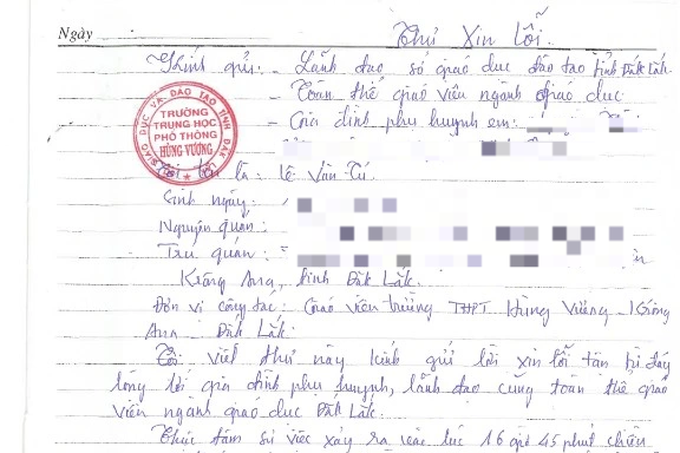 Ngày
Thư Xin Lỗi.
Kính gửi: - Lãnh đạo sở giáo dục đào tạo tỉnh Đắk Lắk.
- Toàn thể giáo viên ngành giáo dục
- Gia đình phụ huynh em:
SỞ GIÁO DỤC VÀ ĐÀO TẠO TỈNH ĐẮK LẮK
TRƯỜNG
TRUNG HỌC
PHỔ THÔNG
HÙNG VƯƠNG
Tôi tên là: Lê Văn Tú.
Sinh ngày:
Nguyên quán:
Trú quán:
Krông Ana, tỉnh Đắk Lắk.
Đơn vị công tác: Giáo viên trường THPT Hùng Vương - Krông
Ana - Đắk Lắk.
Tôi viết thư này kính gửi lời xin lỗi tận đáy
lòng tới gia đình phụ huynh, lãnh đạo cùng toàn thể giáo
viên ngành giáo dục Đắk Lắk.
sự việc xảy ra vào lúc 16 giờ 45 phút chiều